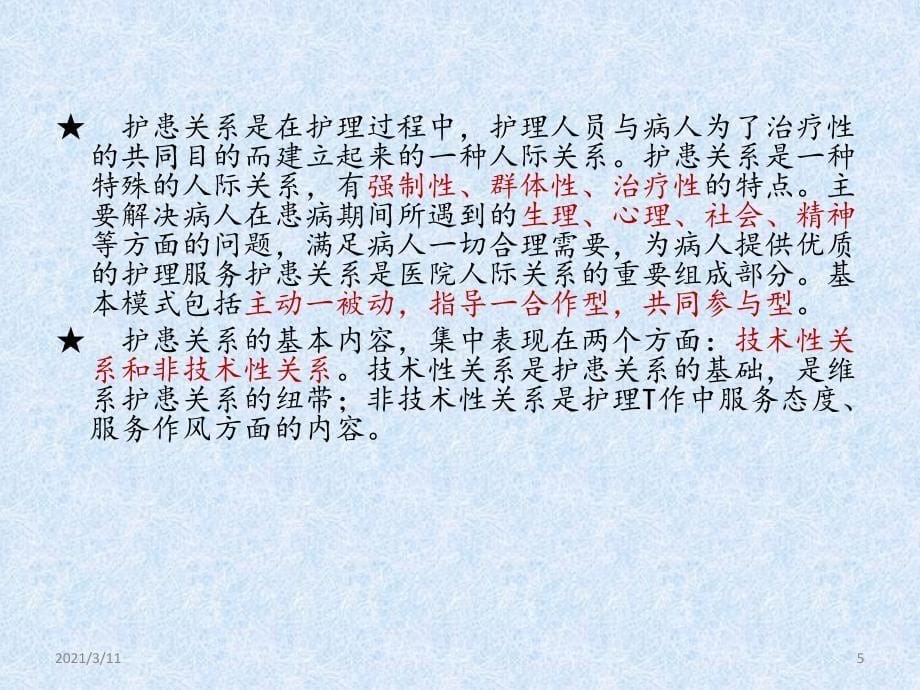 ★ 护患关系是在护理过程中，护理人员与病人为了治疗性
的共同目的而建立起来的一种人际关系。护患关系是一种
特殊的人际关系，有强制性、群体性、治疗性的特点。主
要解决病人在患病期间所遇到的生理、心理、社会、精神
等方面的问题，满足病人一切合理需要，为病人提供优质
的护理服务护患关系是医院人际关系的重要组成部分。基
本模式包括主动一被动，指导一合作型，共同参与型。
★ 护患关系的基本内容，集中表现在两个方面：技术性关
系和非技术性关系。技术性关系是护患关系的基础，是维
系护患关系的纽带；非技术性关系是护理T作中服务态度、
服务作风方面的内容。
2021/3/11
5